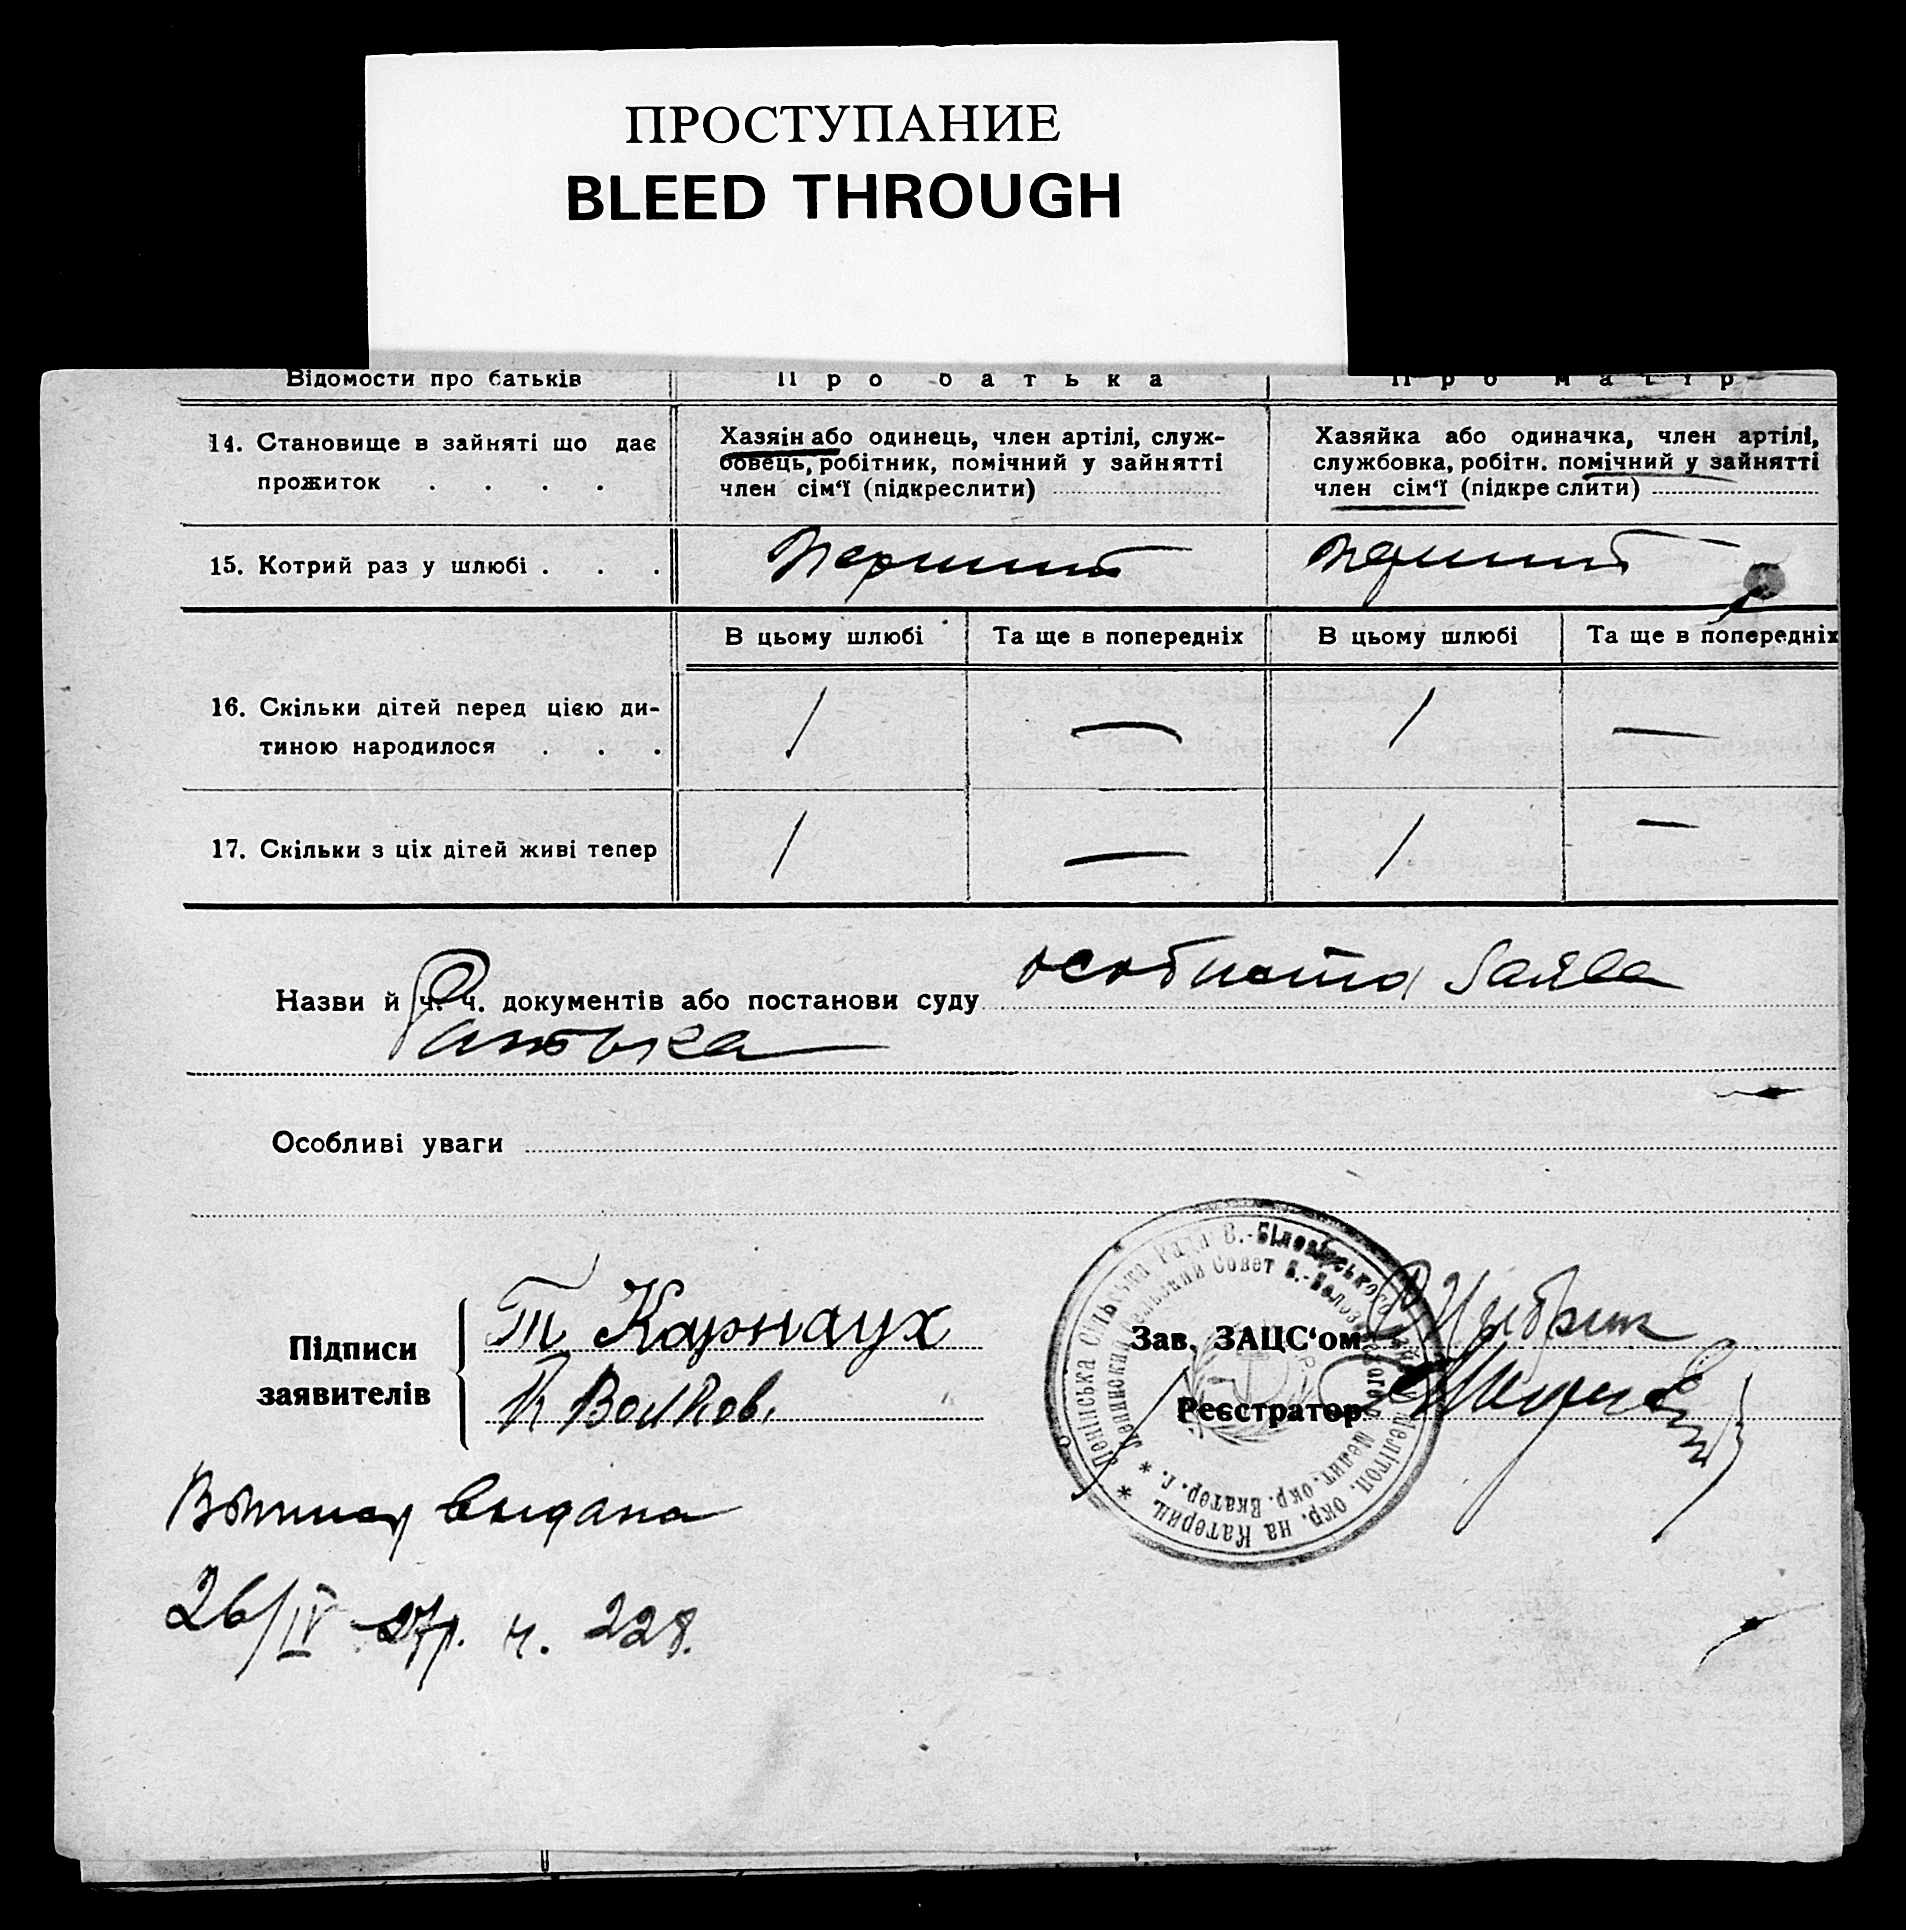 ПРОСТУПАНИЕ
BLEED THROUGH
Відомости про батьків Про батька Про матір
14. Становище в зайняті що дає Хазяїн або одинець, член артілі, служ- Хазяйка або одиначка, член артілі,
прожиток . . . . бовець, робітник, помічний у зайнятті службовка, робітн. помічний у зайнятті
член сім‘ї (підкреслити) член сім‘ї (підкреслити)
15. Котрий раз у шлюбі . . . перший перший
В цьому шлюбі Та ще в попередніх В цьому шлюбі Та ще в попередніх
16. Скільки дітей перед цією ди- 1 — 1 —
тиною народилося . . .
17. Скільки з ціх дітей живі тепер 1 — 1 —
Назви й ч. ч. документів або постанови суду особиста заява
батька
Особливі уваги
Підписи
заявителів
Т Карнаух
Волков.
Зав. ЗАЦС‘ом
Реєстратор
Ленінська сільська Рада В.-Білозерського району Мелітоп. окр. на Катерин.
Ленинский сельский Совет В.-Белозерского Мелит. окр. Екатер. г.
видана
26/IV 27р. ч. 228.